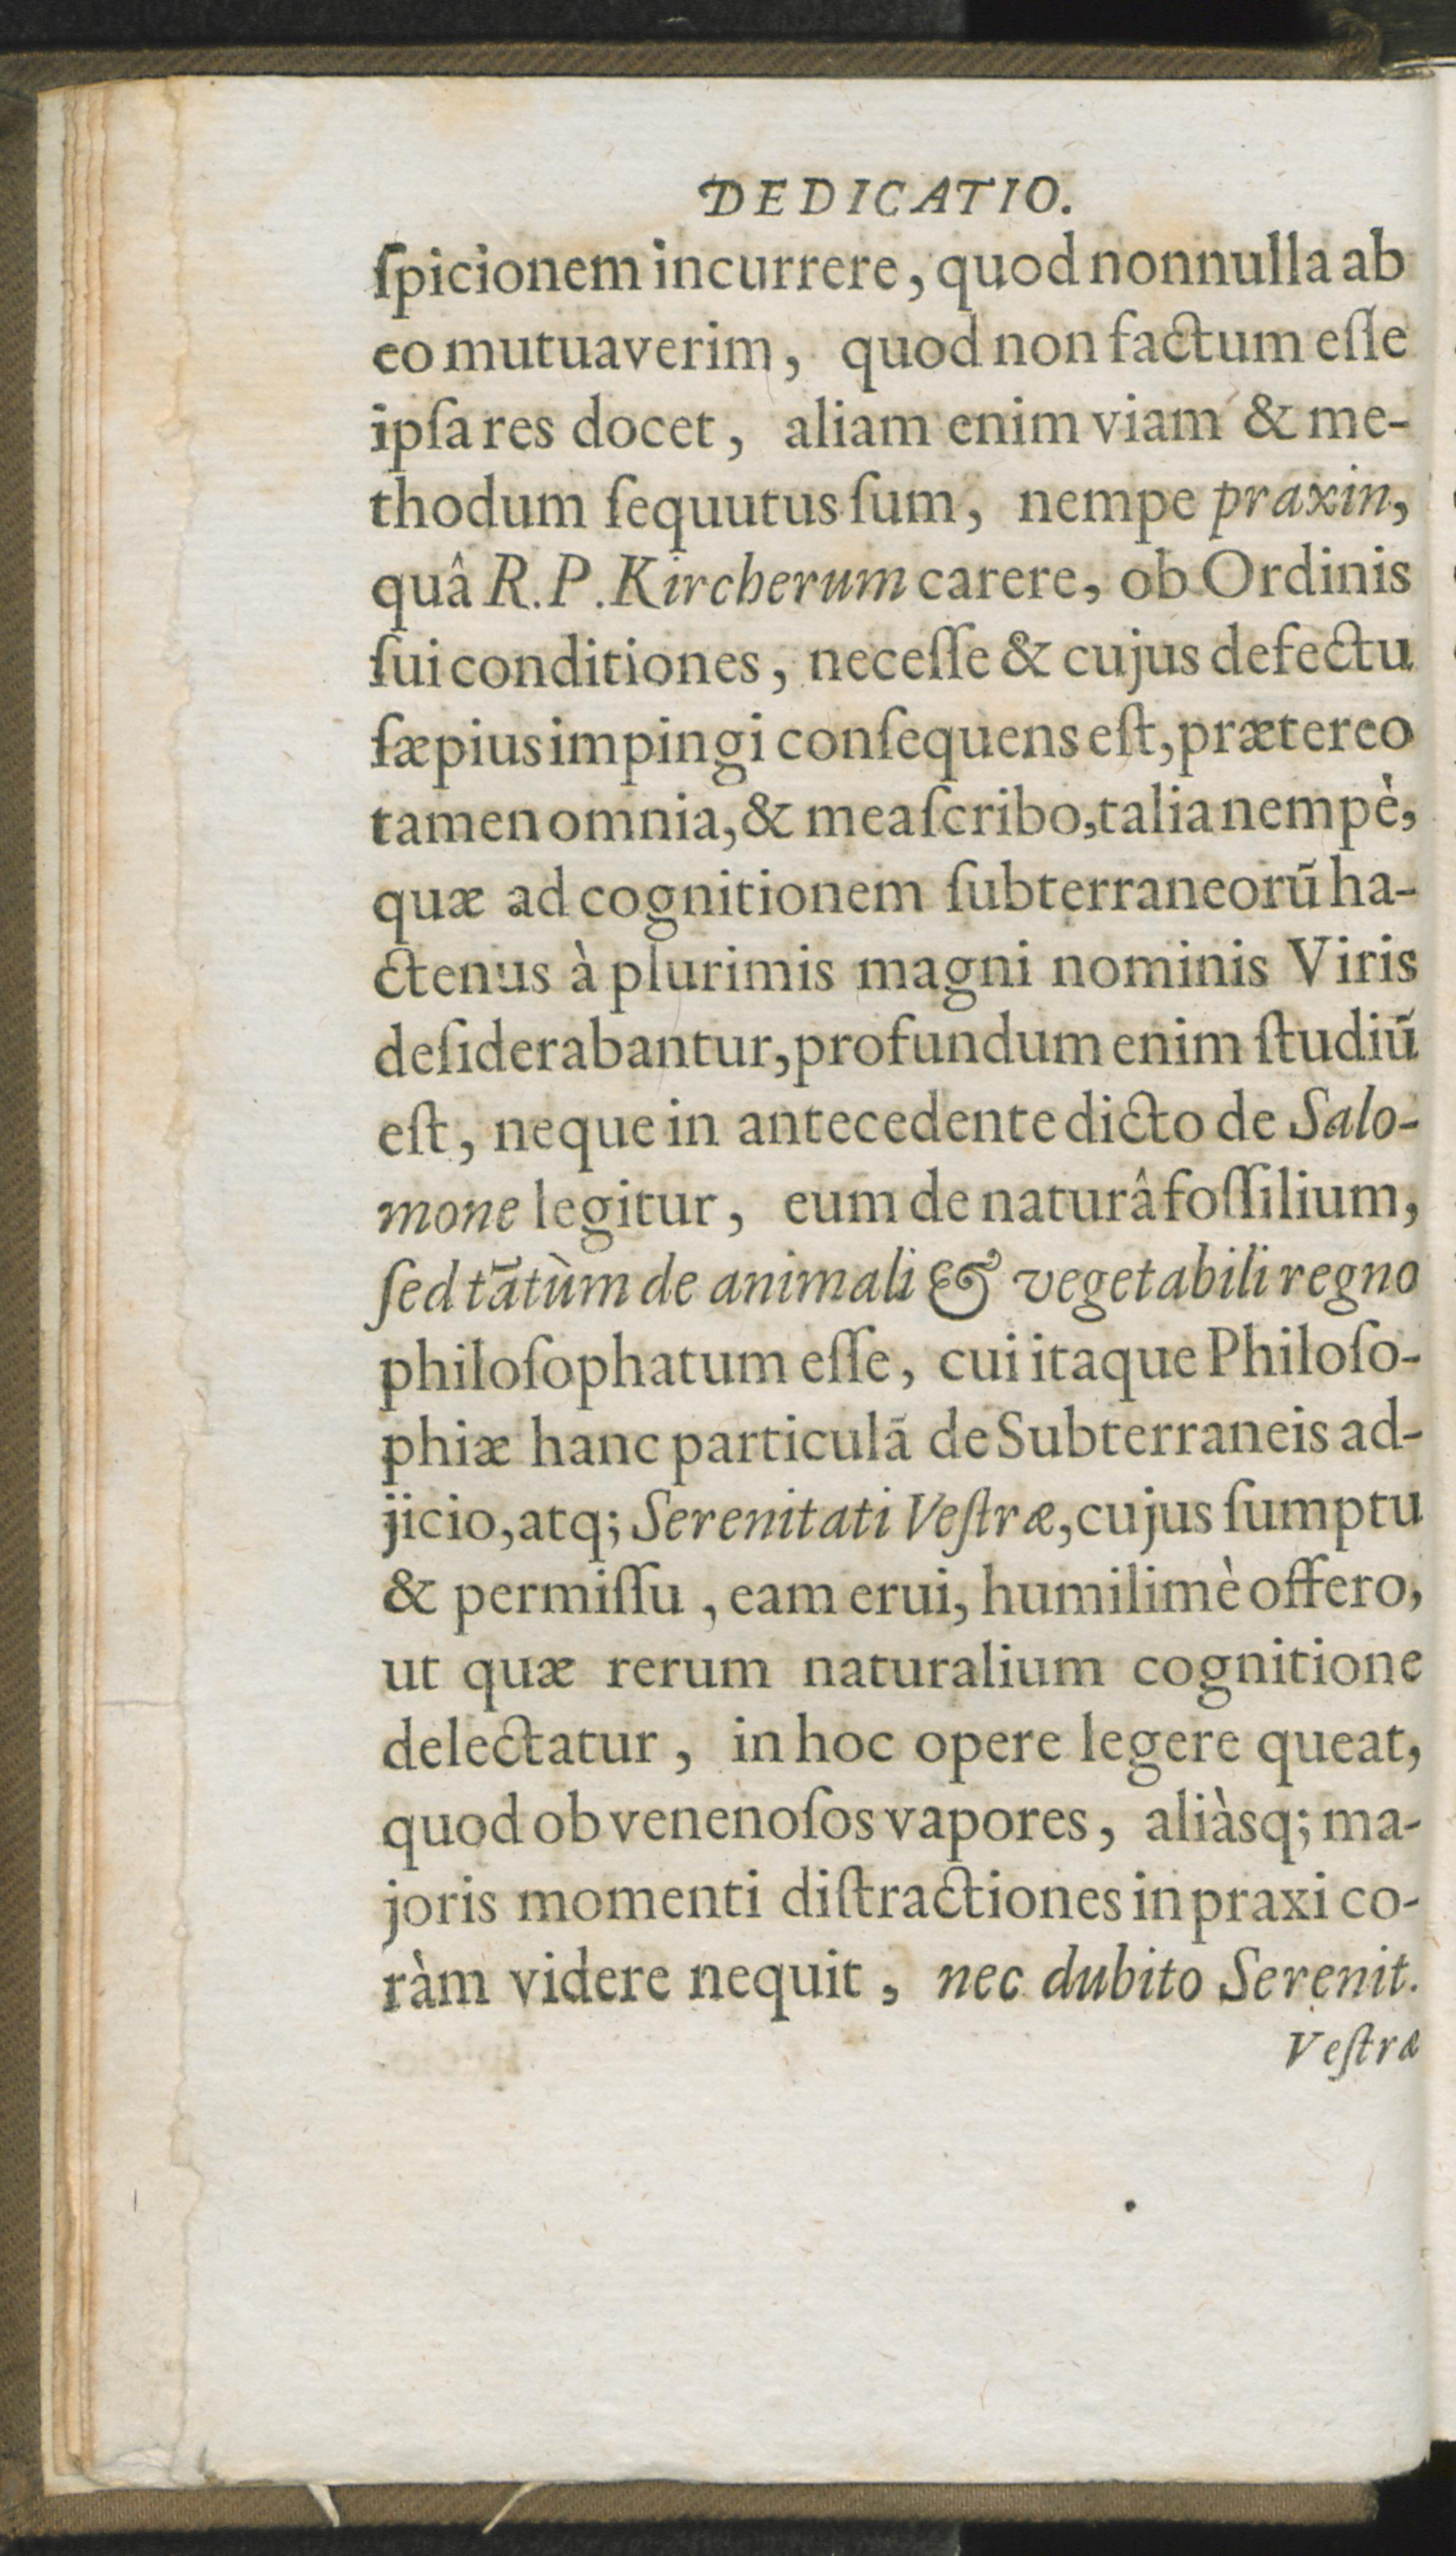 DEDICATIO.
ſpicionem incurrere, quod nonnulla ab
eo mutuaverim, quod non factum eſſe
ipſa res docet, aliam enim viam & me-
thodum ſequutus ſum, nempe praxin,
quâ R.P. Kircherum carere, ob Ordinis
ſui conditiones, neceſſe & cujus defectu
ſæpius impingi conſequens eſt, prætereo
tamen omnia, & mea ſcribo, talia nempè,
quæ ad cognitionem ſubterraneorũ ha-
ctenus à plurimis magni nominis Viris
deſiderabantur, profundum enim ſtudiũ
eſt, neque in antecedente dicto de Salo-
mone legitur, eum de naturâ foſſilium,
ſed tãtùm de animali & vegetabili regno
philoſophatum eſſe, cui itaque Philoſo-
phiæ hanc particulã de Subterraneis ad-
jicio, atq; Serenitati Veſtræ, cujus ſumptu
& permiſſu, eam erui, humilimè offero,
ut quæ rerum naturalium cognitione
delectatur, in hoc opere legere queat,
quod ob venenoſos vapores, aliàsq; ma-
joris momenti diſtractiones in praxi co-
ràm videre nequit, nec dubito Serenit.
Veſtræ